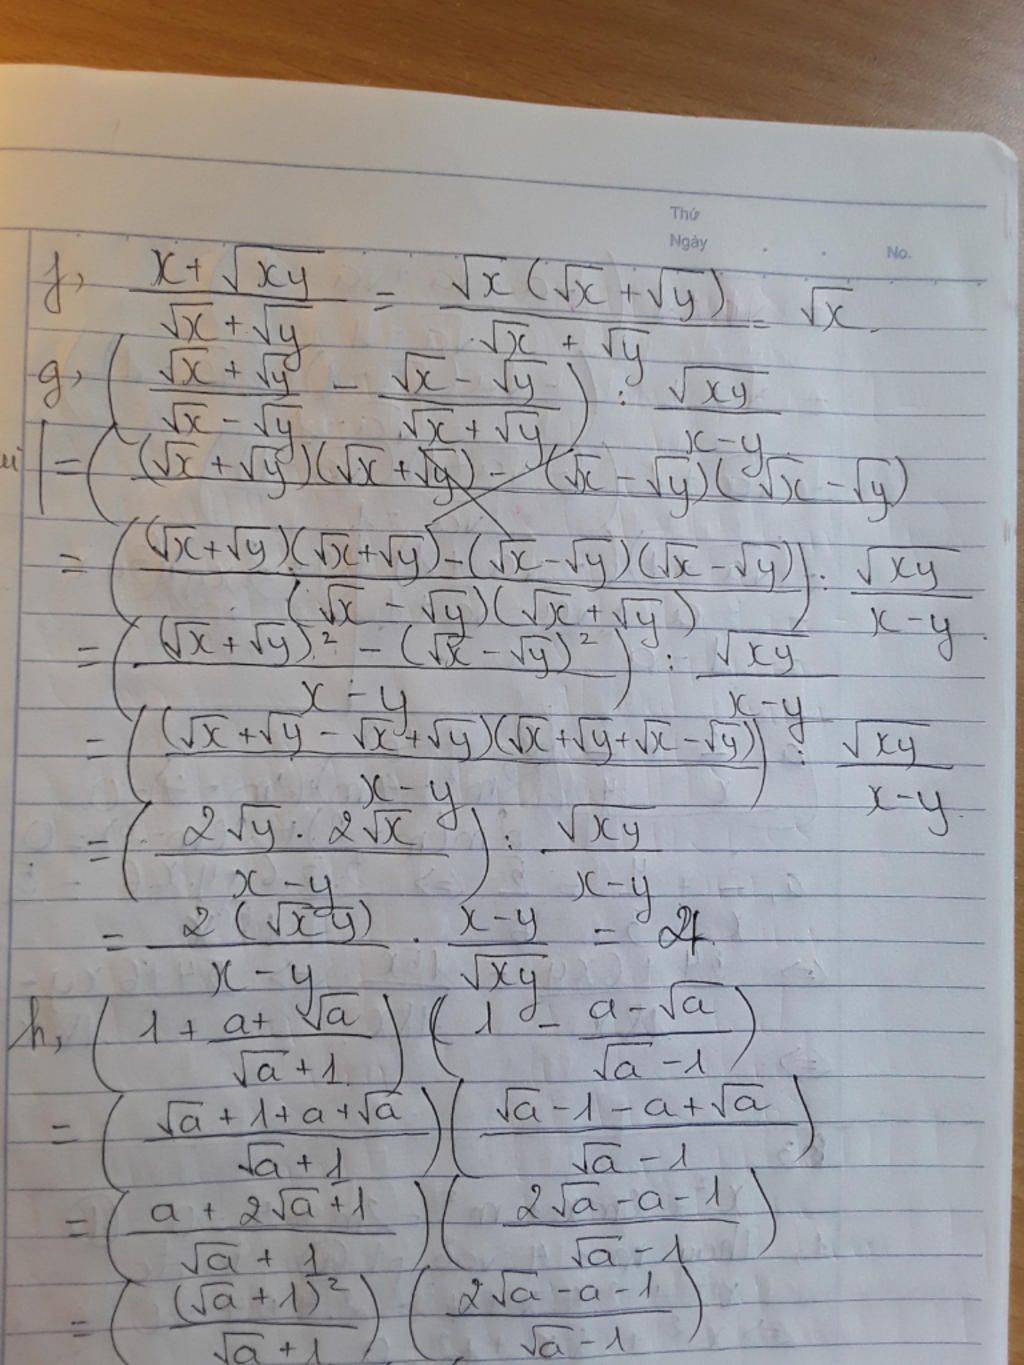 Thứ
Ngày
No.
f, (x + √(xy))/(√x + √y) = (√x (√x + √y))/(√x + √y) = √x.
g, ((√x + √y)/(√x − √y) − (√x − √y)/(√x + √y)) : √(xy)/(x − y)
= ((√x + √y)(√x + √y) − (√x − √y)(√x − √y)
= (((√x + √y)(√x + √y) − (√x − √y)(√x − √y))/((√x − √y)(√x + √y))) : √(xy)/(x − y).
= (((√x + √y)² − (√x − √y)²)/(x − y)) : √(xy)/(x − y)
= (((√x + √y − √x + √y)(√x + √y + √x − √y))/(x − y)) : √(xy)/(x − y).
= ((2√y . 2√x)/(x − y)) : √(xy)/(x − y)
= (2(√xy))/(x − y) . (x − y)/√(xy) = 4.
h, (1 + (a + √a)/(√a + 1)) (1 − (a − √a)/(√a − 1))
= ((√a + 1 + a + √a)/(√a + 1)) ((√a − 1 − a + √a)/(√a − 1))
= ((a + 2√a + 1)/(√a + 1)) ((2√a − a − 1)/(√a − 1))
= ((√a + 1)²/(√a + 1)) ((2√a − a − 1)/(√a − 1))